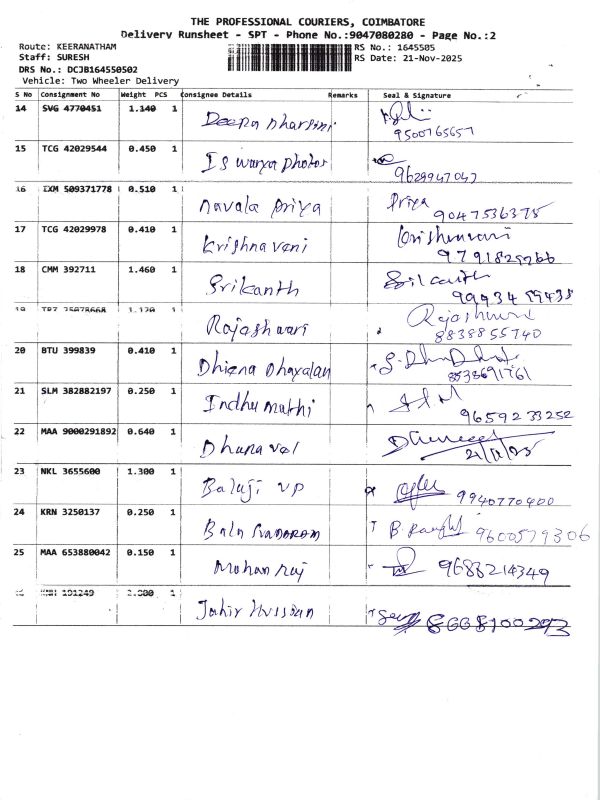 THE PROFESSIONAL COURIERS, COIMBATORE
Delivery Runsheet - SPT - Phone No.:9047080280 - Page No.:2
Route: KEERANATHAM
RS No.: 1645505
Staff: SURESH
RS Date: 21-Nov-2025
DRS No.: DCJB164550502
Vehicle: Two Wheeler Delivery
S No Consignment No Weight PCS Consignee Details Remarks Seal & Signature
14 SVG 4770451 1.140 1
Deepa Dharsini
9500765657
15 TCG 42029544 0.450 1
Iswarya
9629947047
16 IXM 509371778 0.510 1
navala priya Priya
9047536375
17 TCG 42029978 0.410 1
Krishnaveni Krishnaveni
9791829266
18 CMM 392711 1.460 1
Srikanth Srikanth
19 1
Rajashwari Rajashwari
8838855740
20 BTU 399839 0.410 1
Dhiena Dhayalan
8538691761
21 SLM 382882197 0.250 1
Indhumathi
9659233252
22 MAA 9000291892 0.640 1
Dhanavel
21/11/25
23 NKL 3655600 1.300 1
Balaji VP
9940770400
24 KRN 3250137 0.250 1
9600579306
25 MAA 653880042 0.150 1
Mohan raj
9688214349
1
Jahir Hussain
8668100293